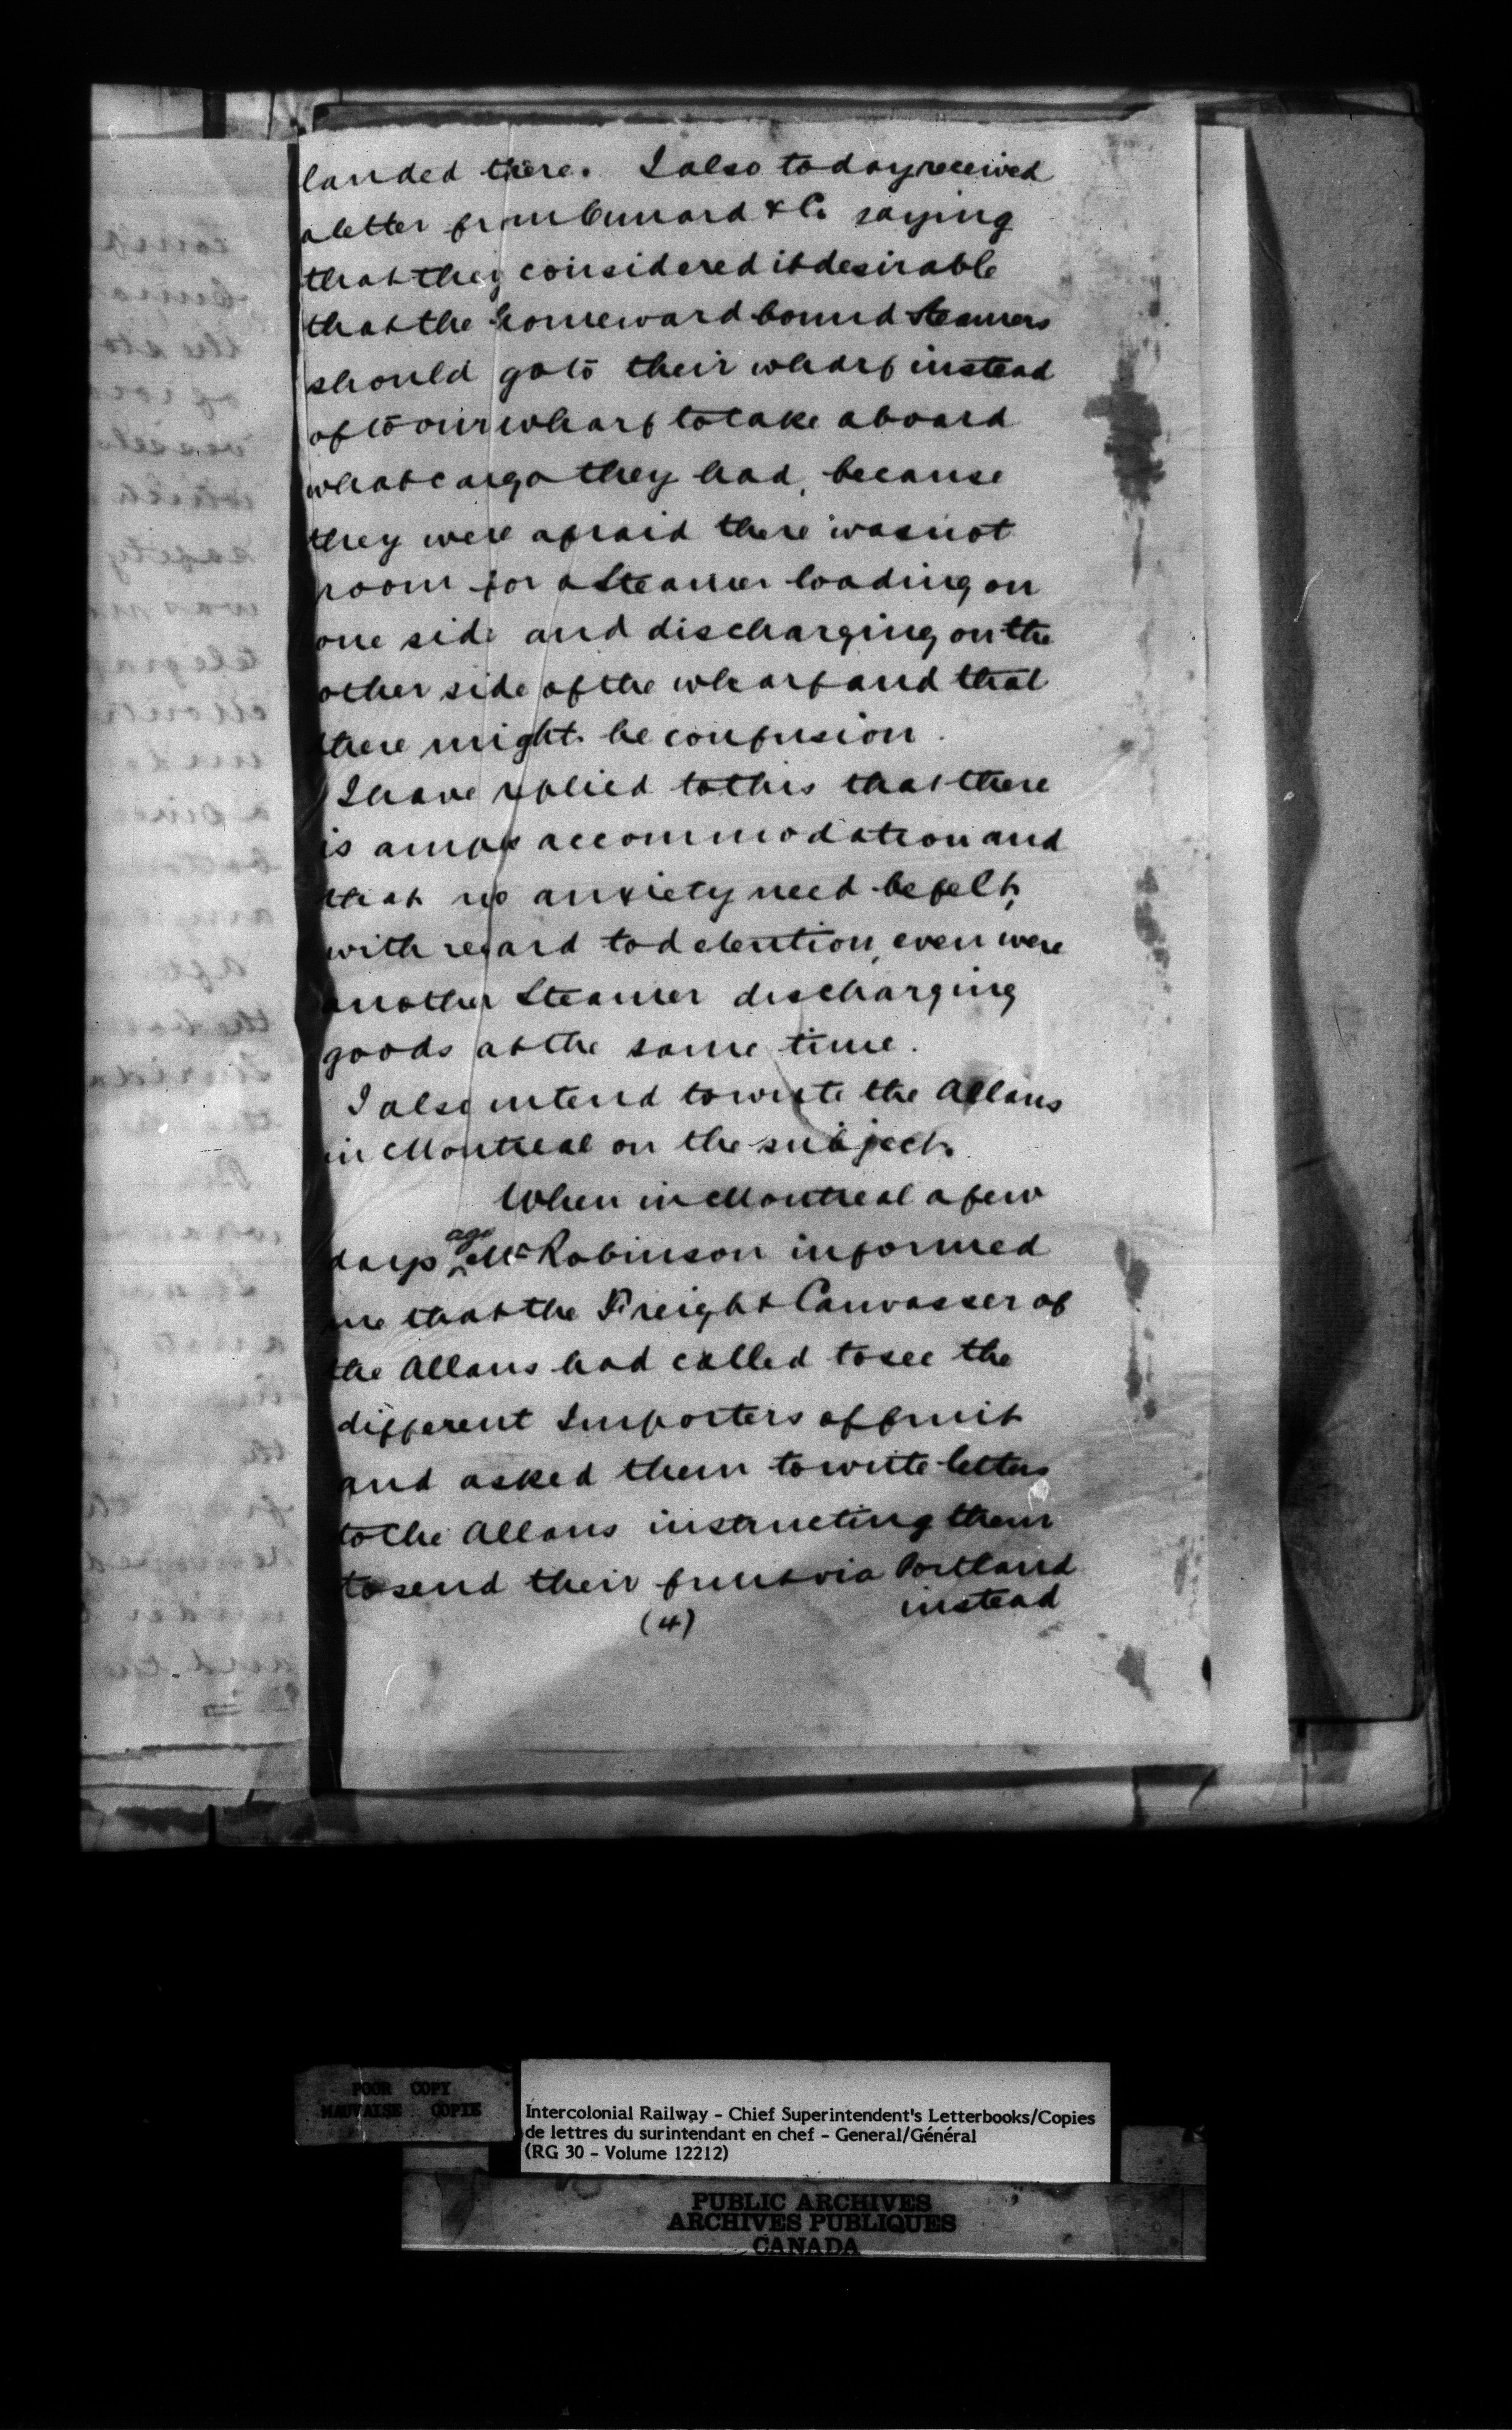 landed there. I also today received
a letter from Cunard & Co saying
that they considered it desirable
that the homeward bound Steamers
should go to their wharf instead
of to our wharf to take aboard
what cargo they had, because
they were afraid there was not
room for a Steamer loading on
one side and discharging on the
other side of the wharf and that
there might be confusion.
I have replied to this that there
is ample accommodation and
that no anxiety need be felt,
with regard to detention, even were
another Steamer discharging
goods at the same time.
I also intend to write the Allans
in Montreal on the subject.
When in Montreal a few
days ago Mr Robinson informed
me that the Freight Canvasser of
the Allans had called to see the
different Importers of fruit
and asked them to write letters
to the Allans instructing them
to send their fruit via Portland
instead
(4)
POOR COPY
MAUVAISE COPIE
Intercolonial Railway - Chief Superintendent's Letterbooks/Copies
de lettres du surintendant en chef - General/Général
(RG 30 - Volume 12212)
PUBLIC ARCHIVES
ARCHIVES PUBLIQUES
CANADA